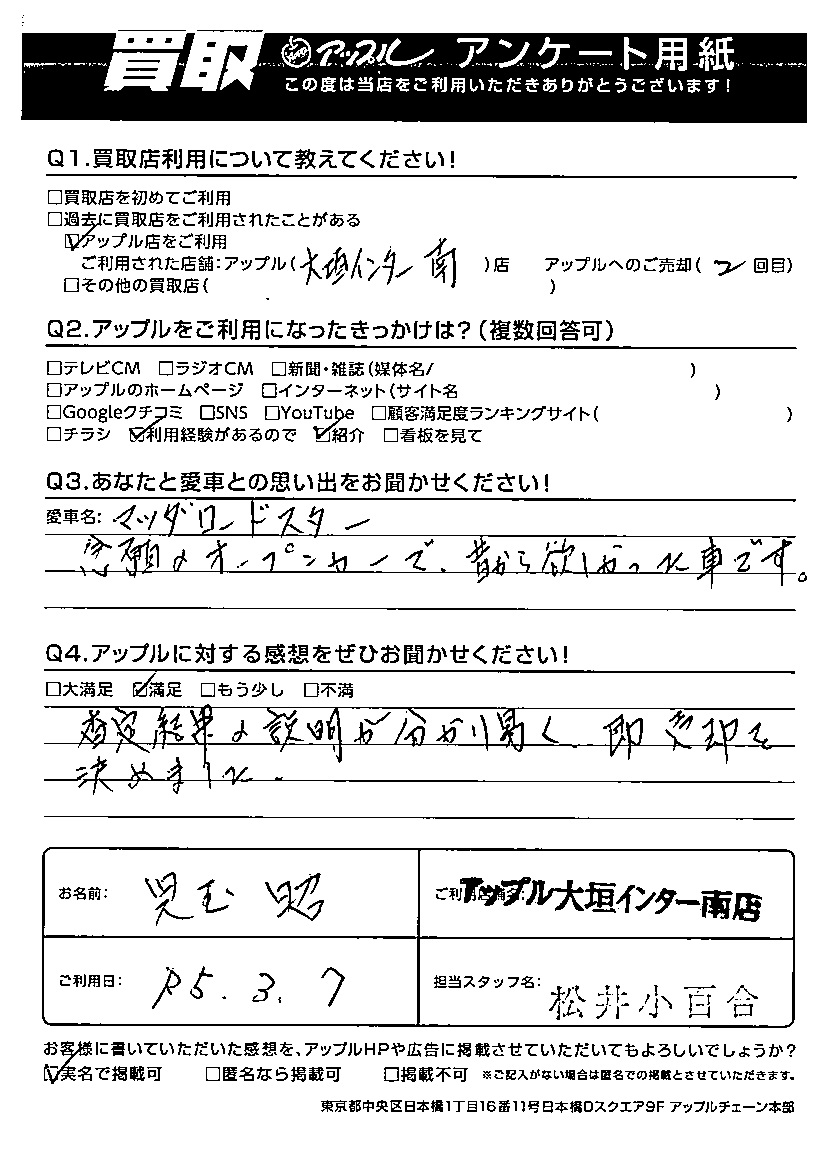 買取 アップル アンケート用紙
この度は当店をご利用いただきありがとうございます!
Q1.買取店利用について教えてください!
□買取店を初めてご利用
□過去に買取店をご利用されたことがある
☑アップル店をご利用
ご利用された店舗:アップル(大垣インター南)店 アップルへのご売却(2回目)
□その他の買取店( )
Q2.アップルをご利用になったきっかけは?(複数回答可)
□テレビCM □ラジオCM □新聞・雑誌(媒体名/ )
□アップルのホームページ □インターネット(サイト名 )
□Googleクチコミ □SNS □YouTube □顧客満足度ランキングサイト( )
□チラシ ☑利用経験があるので ☑紹介 □看板を見て
Q3.あなたと愛車との思い出をお聞かせください!
愛車名:マツダロードスター
念願のオープンカーで、昔から欲しかった車です。
Q4.アップルに対する感想をぜひお聞かせください!
□大満足 ☑満足 □もう少し □不満
査定結果の説明が分かり易く、即売却を
決めました。
お名前: 児玉 昭
ご利用店舗名: アップル大垣インター南店
ご利用日: R5.3.7
担当スタッフ名: 松井小百合
お客様に書いていただいた感想を、アップルHPや広告に掲載させていただいてもよろしいでしょうか?
☑実名で掲載可 □匿名なら掲載可 □掲載不可 ※ご記入がない場合は匿名での掲載とさせていただきます。
東京都中央区日本橋1丁目16番11号日本橋Dスクエア9F アップルチェーン本部